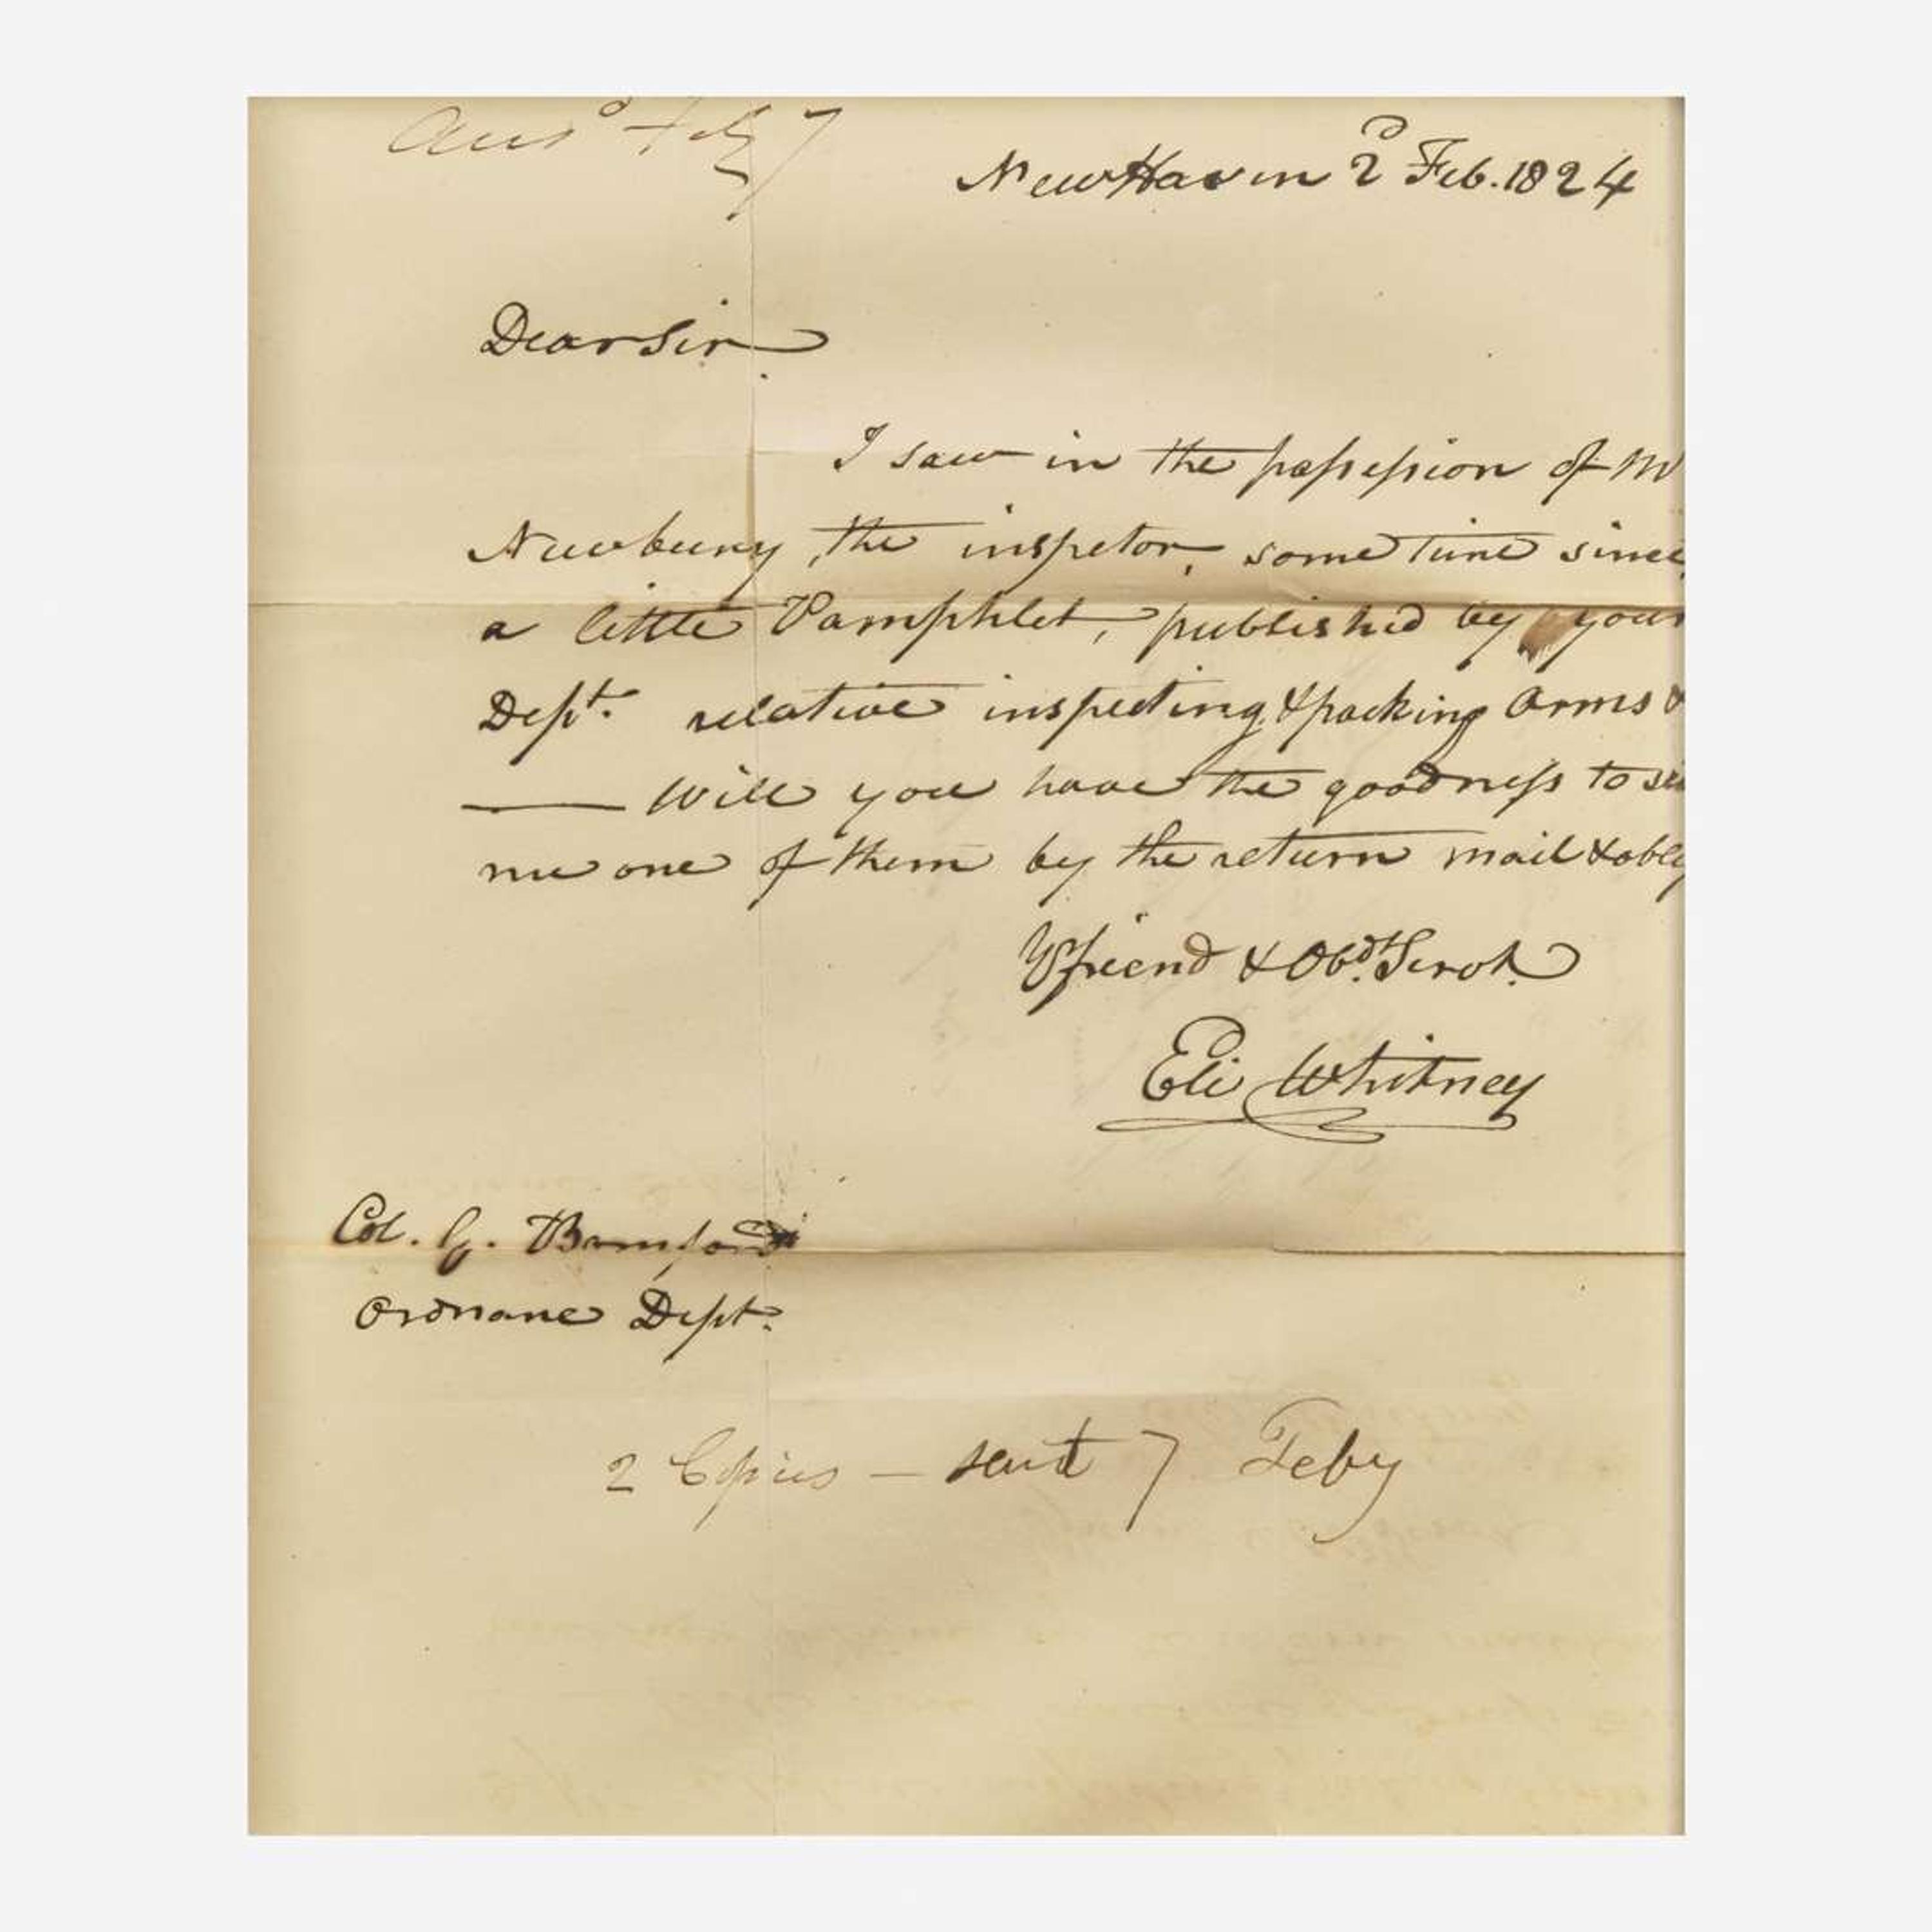 Ansd Feby 7
New Haven 2d Feb. 1824
Dear Sir
I saw in the possession of M
Newbury, the inspetor, some time since,
a little Pamphlet, published by your
Dept. relative inspecting & packing Arms &
— Will you have the goodness to
me one of them by the return mail & oblg
Yr friend & Obdt. Servt.
Eli Whitney
Col. G. Bomford
Ordnance Dept.
2 Copies — sent 7 Feby